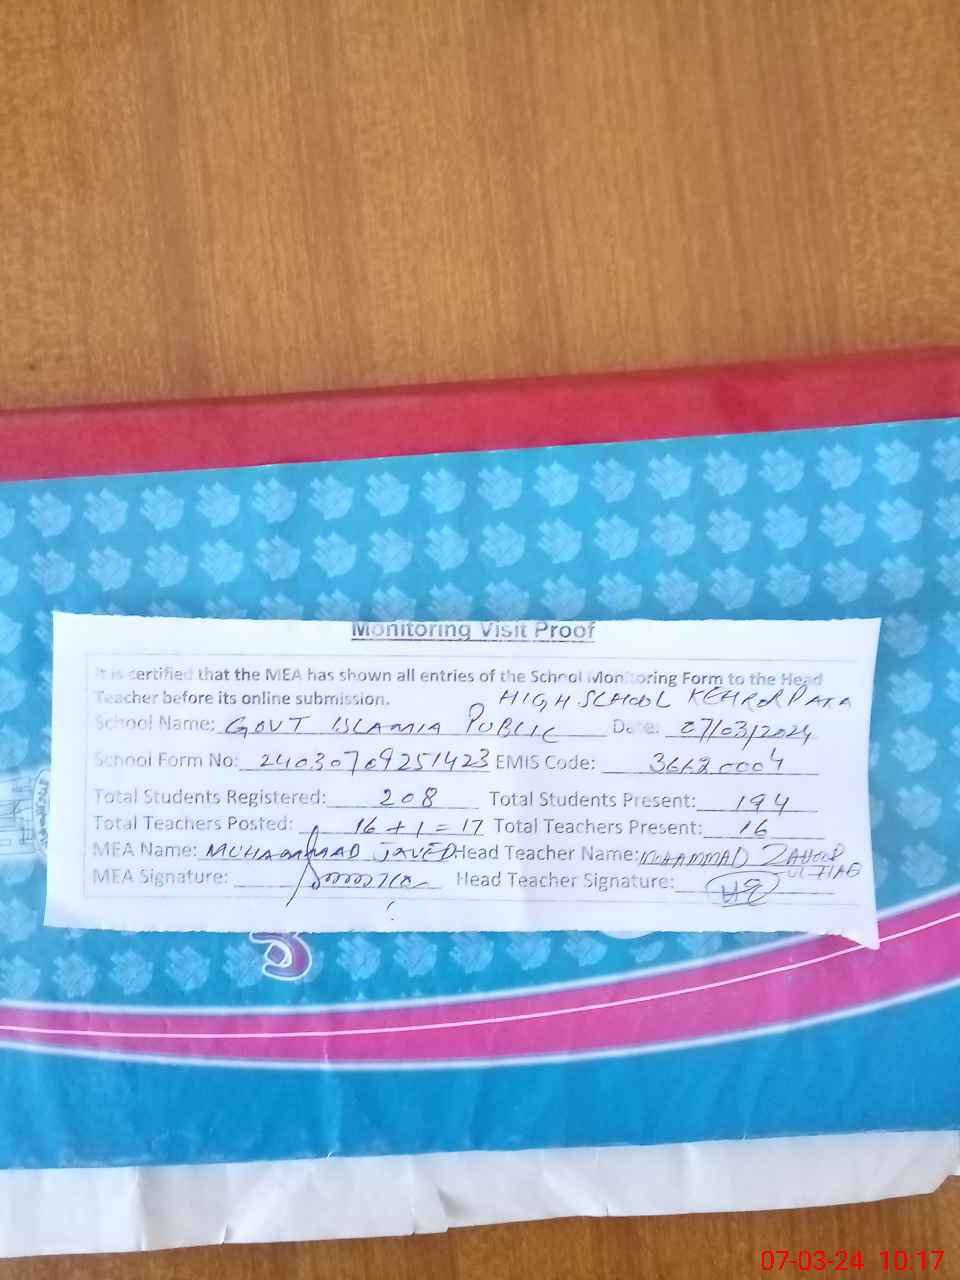 Monitoring Visit Proof
It is certified that the MEA has shown all entries of the School Monitoring Form to the Head
Teacher before its online submission.
HIGH SCHOOL KEHROR PAKA
School Name: GOVT ISLAMIA PUBLIC Date: 07/03/2024
School Form No: 24030709251423 EMIS Code:
Total Students Registered: 208 Total Students Present: 194
Total Teachers Posted: 16 + 1 = 17 Total Teachers Present: 16
MEA Name: MUHAMMAD JAVED Head Teacher Name: MUHAMMAD ZAHOOR
MEA Signature: Head Teacher Signature:
07-03-24 10:17